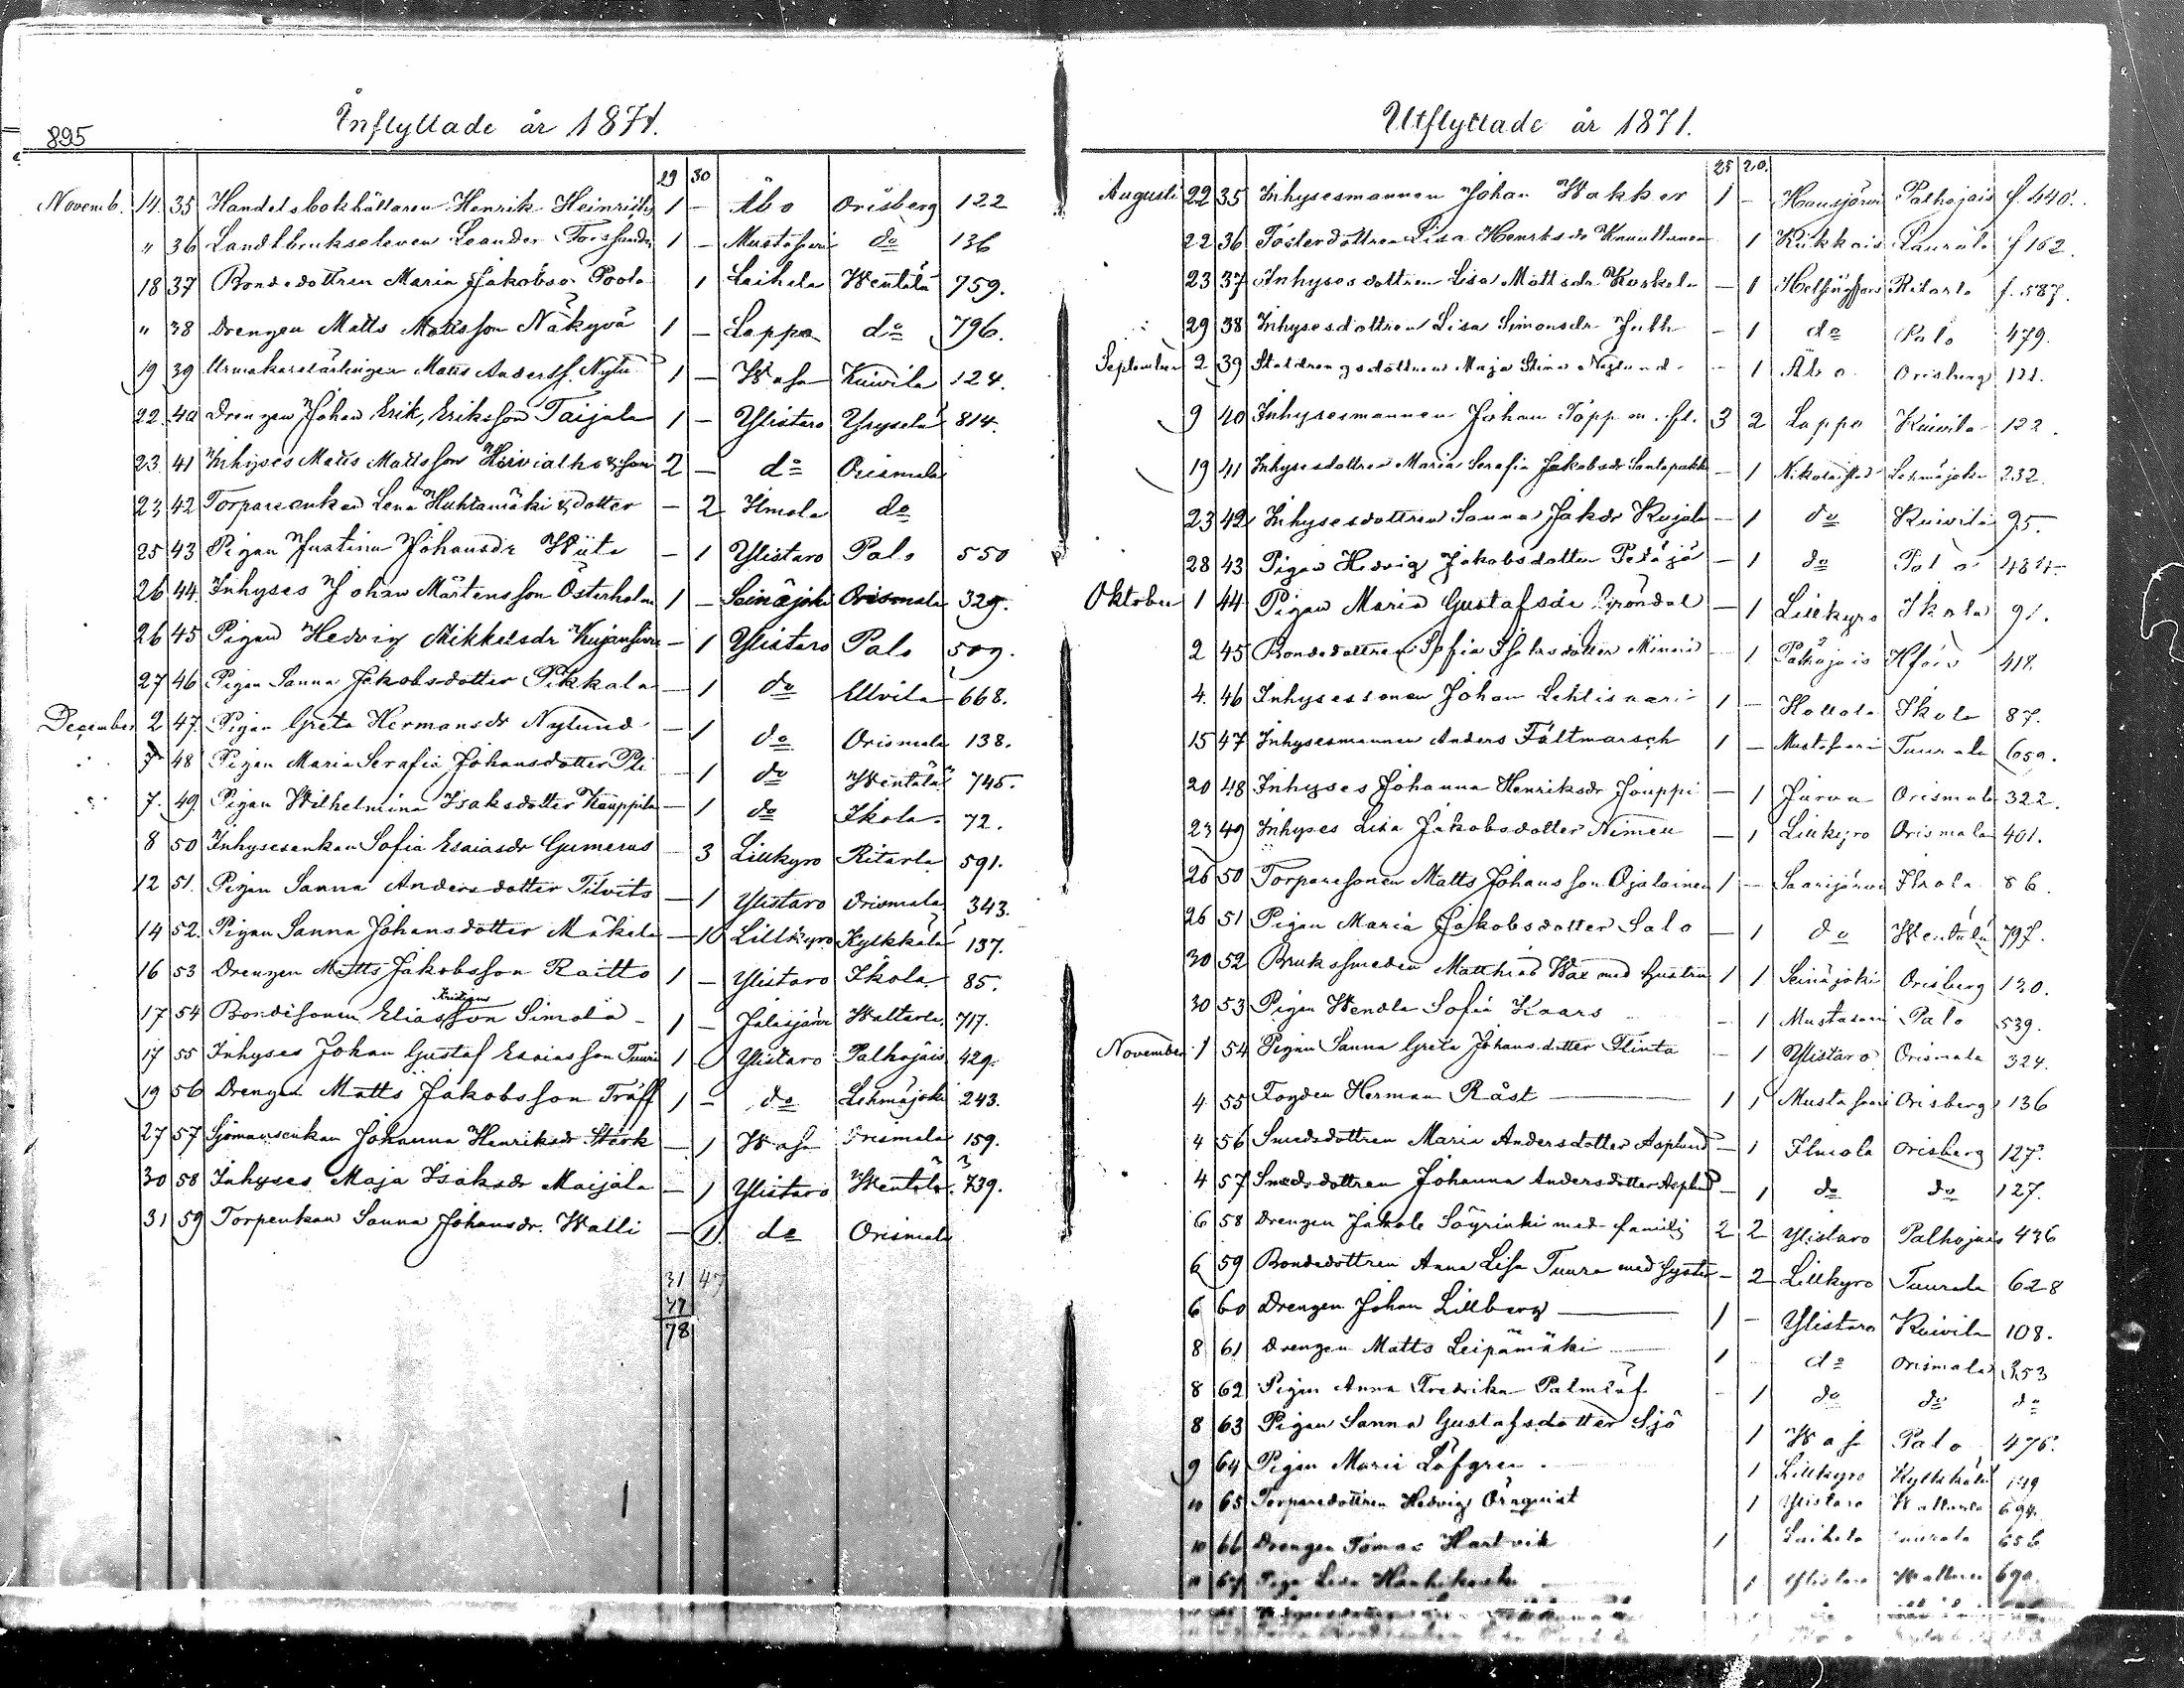 895
Inflyttade år 1871.
29 30
Novemb. 14 35 Handelsbokhållaren Henrik Heinrichs 1 - Åbo Orisberg 122
" 36 Landtbrukseleven Leander Forssander 1 - Mustasaari do 136
18 37 Bondedottren Maria Jakobsdr Poola 1 Laihela Wentälä 759.
" 38 Drengen Matts Mattsson Näkyvä 1 - Lappo do 796.
19 39 Urmakarelärlingen Matts Anderss. Nyty 1 - Wasa Kuivila 124.
22. 40 Drengen Johan Erik, Eriksson Taijala 1 - Ylistaro Yrysелä 814.
23. 41 Inhyses Matts Mattsson Hirvialho & son 2 - do Orismala
23 42 Torpareenkan Lena Huhtamäki & dotter - 2 Ilmola do
25 43 Pigan Justina Johansdr Wiita - 1 Ylistaro Palo 550
26 44. Inhyses Johan Mårtensson Österholm 1 - Seinäjoki Orismala 329.
26 45 Pigan Hedvig Mikkelsdr Kujansivu - 1 Ylistaro Palo 509.
27 46 Pigan Sanna Jakobsdotter Pikkala - 1 do Ullvila 668.
December 2 47. Pigan Greta Hermansdr Nylund - 1 do Orismala 138.
7 48 Pigan Maria Serafia Johansdotter Pli - 1 do Wentälä 745.
7. 49. Pigan Wilhelmina Isaksdotter Kauppila - 1 do Ikola. 72.
8 50 Inhysesenkan Sofia Esaiasdr Gumerus - 3 Lillkyro Ritarla 591.
12 51. Pigan Sanna Andersdotter Tilvits - 1 Ylistaro Orismala 343.
14 52. Pigan Sanna Johansdotter Mäkelä - 1 Lillkyro Kylkkälä 137.
16 53 Drengen Matts Jakobsson Raitto 1 - Ylistaro Ikola. 85.
17 54 Bondesonen Elias Kristiansson Simola 1 - Jalasjärvi Waltarla. 717.
17 55 Inhyses Johan Gustaf Esaiasson Tuuri 1 Ylistaro Palhojais 429.
19 56 Drengen Matts Jakobsson Träff 1 - do Lehmäjoki 243.
27 57 Sjömansenkan Johanna Henriksdr Stark - 1 Wasa Orismala 159.
30 58 Inhyses Maja Isaksdr Maijala - 1 Ylistaro Wentälä. 739.
31 59 Torpenkan Sanna Johansdr. Walli - 1. do Orismala
31 47
47
78
Utflyttade år 1871.
25 20.
Augusti 22 35 Inhysesmannen Johan Wakker 1 - Hausjärvi Palhojais f. 440.
22 36 Fosterdottren Lisa Henriksdr Knuuttunen 1 Kiikkais Laurola f 162.
23 37 Inhysesdottren Lisa Mattsdr Koskela - 1 Helsingfors Ritarla f. 587.
29 38 Inhysesdottren Lisa Simonsdr Juth - 1 do Palo 479.
September 2 39 Staldrengsdottren Maja Stina Neglund - 1 Åbo Orisberg 121.
9 40 Inhysesmannen Johan Topp m. fl. 3 2 Lappo Kuivila 122.
19 41 Inhysesdottren Maria Serafia Jakobsdr Santapakka - 1 Nikolaistad Lehmäjoki 232.
23 42 Inhysesdottren Sanna Jakdr Kujala - 1 do Kuivila 95.
28 43 Pigan Hedvig Jakobsdotter Petäjä - 1 do Palo 484.
Oktober 1 44 Pigan Maria Gustafsdr Gröndal - 1 Lillkyro Ikola 91.
2 45 Bondedottren Sofia Isaksdotter Minni - 1 Palhojais Hfors 418.
4. 46 Inhysessonen Johan Lehtisaari 1 - Hollola Ikola 87.
15 47 Inhysesmannen Anders Fältmarsch 1 - Mustasaari Tuurala 659.
20 48 Inhyses Johanna Henriksdr Jouppi - 1 Jurva Orismala 322.
23 49 Inhyses Lisa Jakobsdotter Nimeu - 1 Lillkyro Orismala 401.
26 50 Torparesonen Matts Johansson Ojalainen 1 - Saarijärvi Ikola 86.
26 51 Pigan Maria Jakobsdotter Salo - 1 do Wentälä 797.
30 52 Brukssmeden Matthias Wax med hustru 1 1 Seinäjoki Orisberg 120.
30 53 Pigan Wendla Sofia Kaars - 1 Mustasaari Palo 539.
November 1 54 Pigan Sanna Greta Johansdotter Flinta - 1 Ylistaro Orismala 324.
4 55 Fogden Herman Råst 1 1 Mustasaari Orisberg 136
4 56 Smedsdottren Maria Andersdotter Asplund - 1 Ilmola Orisberg 127.
4 57 Smedsdottren Johanna Andersdotter Asplund - 1 do do 127.
6 58 Drengen Jakob Söyrinki med familj 2 2 Ylistaro Palhojais 436
6 59 Bondedottren Anna Lisa Tuura med syster - 2 Lillkyro Tuurala 628
6 60 Drengen Johan Lillberg 1 - Ylistaro Kuivila 108.
8 61 Drengen Matts Leipämäki 1 do Orismala 353
8 62 Pigan Anna Fredrika Palmlöf - 1 do do do
8 63 Pigan Sanna Gustafsdotter Sjö 1 Wasa Palo 476.
9 64 Pigan Maria Löfgren 1 Lillkyro Kylkkälä 149
10 65 Torparedottren Hedvig Örnqvist 1 Ylistaro Waltarla 694.
10 66 Drengen Tomas Hartvik 1 Laihela Tuurala 656
11 67 Piga Lisa 1 Ylistaro Waltarla 690.